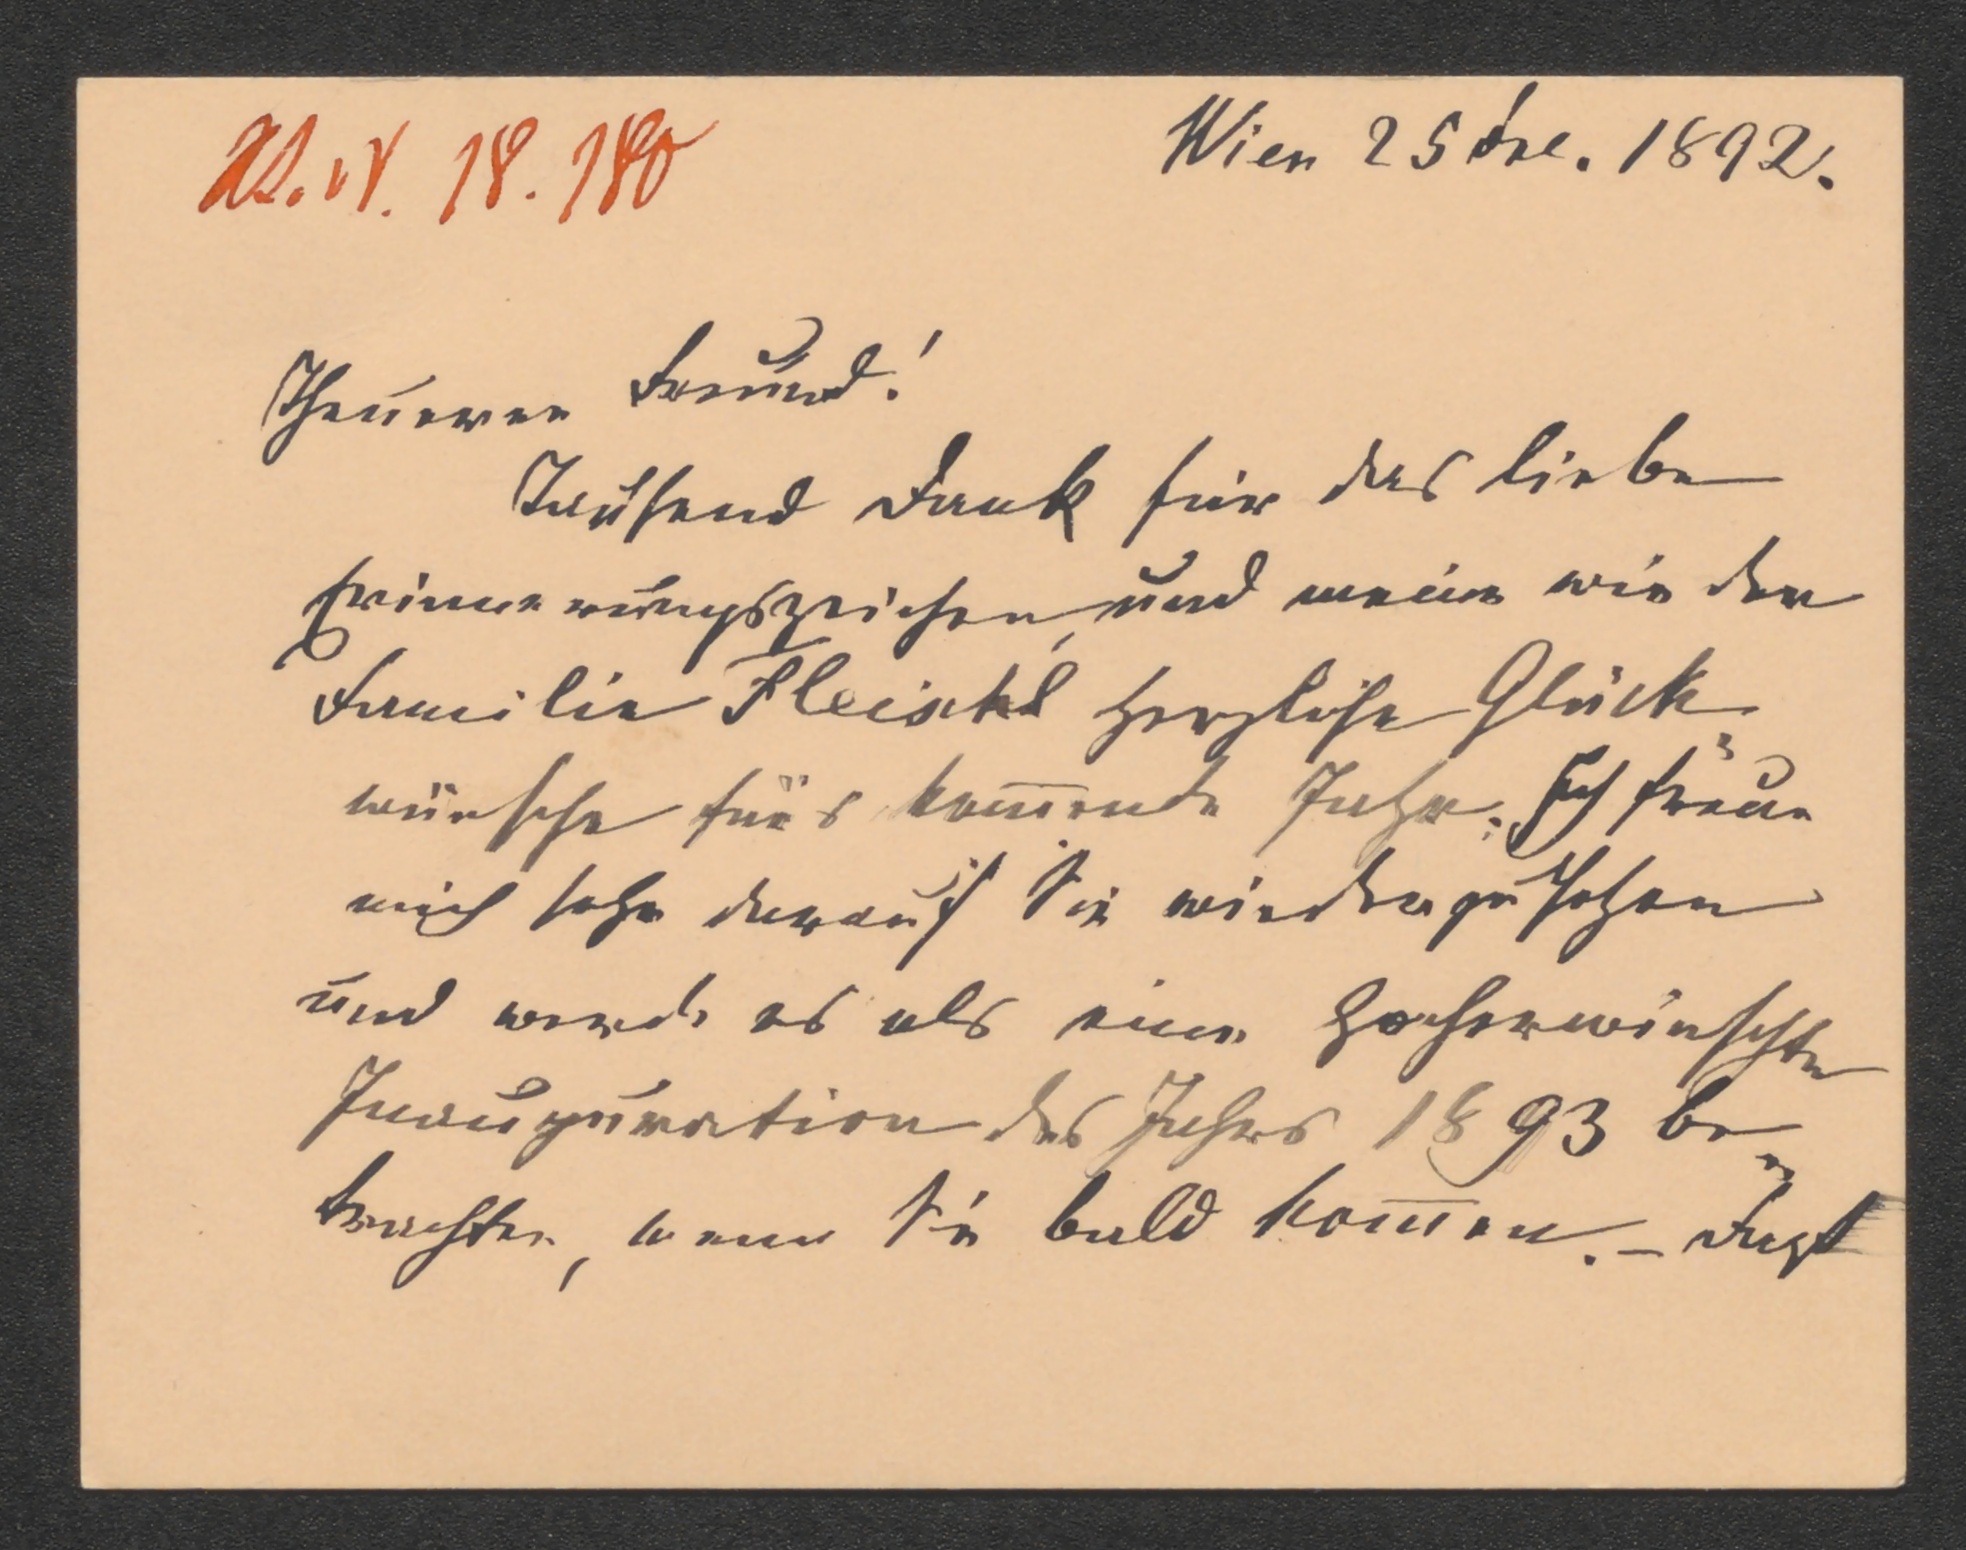 Wien 25 Dec. 1892.
18. 180
Theuerer Freund!
Tausend Dank für das liebe
Erinnerungszeichen, und meine wie der
Familie Fleischl herzliche Glück-
wünsche fürs kom̅ende Jahr. Ich freue
mich sehr darauf Sie wiederzusehen
und werde es als eine hocherwünschte
Inauguration des Jahres 1893 be-
trachten, wenn Sie bald kom̅en. –